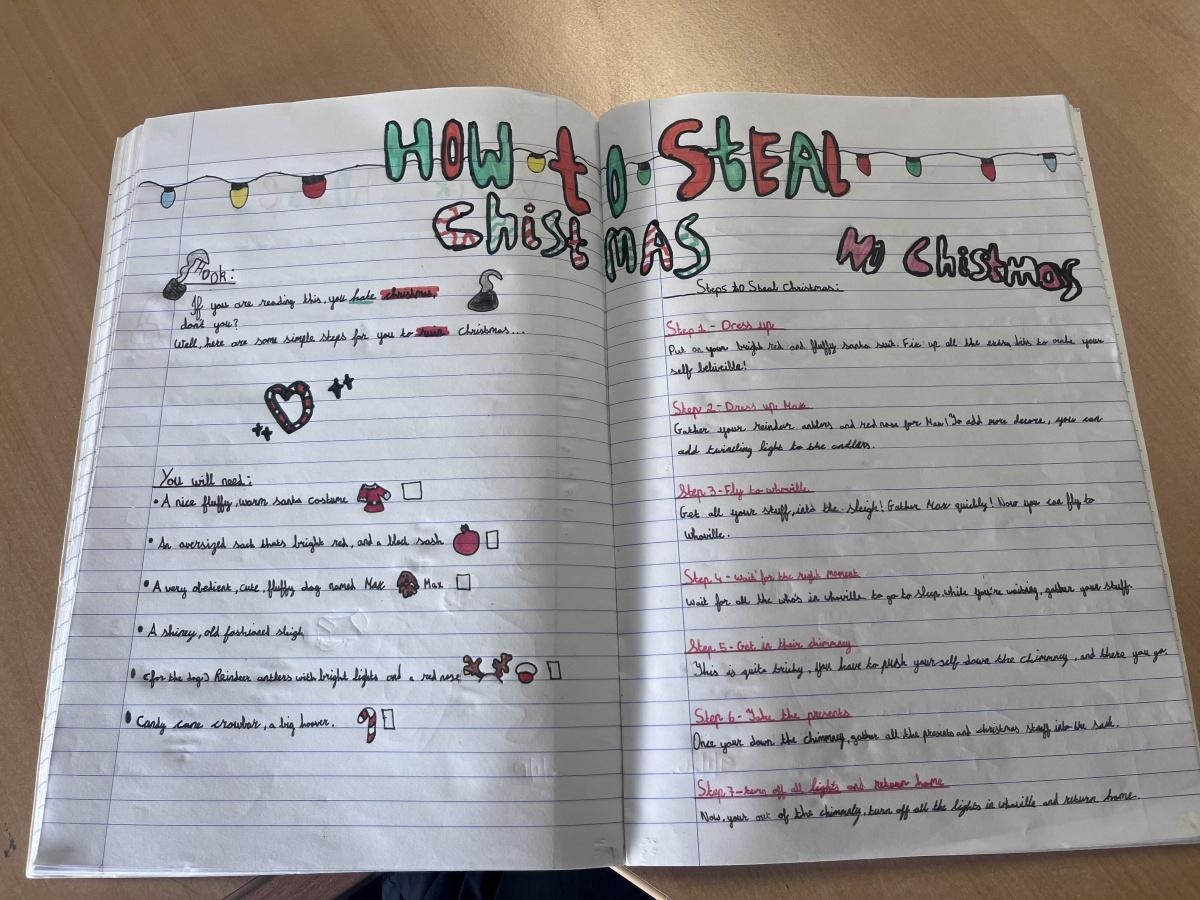 HOW to STEAL
ChistMAS
NO Chistmas
Hook:
If you are reading this, you hate christmas,
don't you?
Well, here are some simple steps for you to ruin Christmas...
You will need:
• A nice fluffy, warm santa costume
• An oversized sack thats bright red, and a black sash
• A very obedient, cute, fluffy dog named Max Max
• A shiney, old fashioned sleigh
• (for the dog) Reindeer antlers with bright lights and a red nose
• Candy cane crowbar, a big hoover.
Steps to Steal Christmas:
Step 1 - Dress up
Put on your bright red and fluffy santa suit. Fix up all the extra bits to make your
self beliveille!
Step 2 - Dress up Max
Gather your reindeer antlers and red nose for Max! To add more decore, you can
add twincling light to the antlers.
Step 3 - Fly to whoville
Get all your stuff, into the sleigh! Gather Max quickly! Now you can fly to
whoville.
Step 4 - Wait for the right moment
Wait for all the who's in whoville to go to sleep. while you're waiting, gather your stuff.
Step 5 - Get in their chimney
This is quite tricky, you have to push your self down the chimney, and there you go.
Step 6 - Take the presents
Once your down the chimney, gather all the presents and christmas stuff into the sack.
Step 7 - turn off all lights and return home
Now, your out of the chimney, turn off all the lights in whoville and return home.